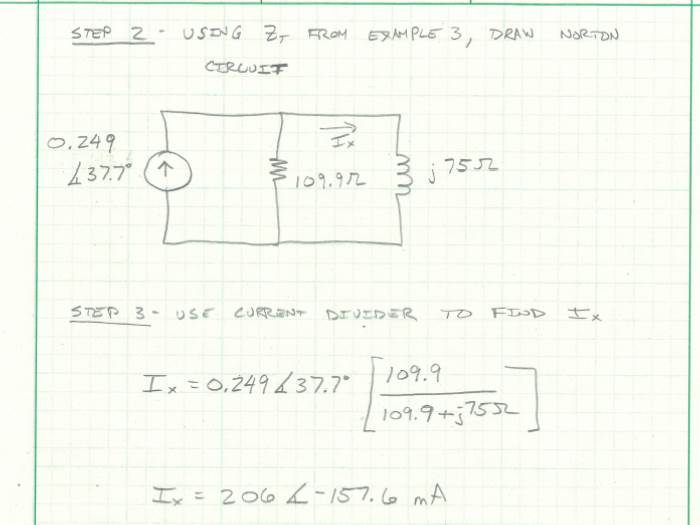 STEP 2 - USING Z_T FROM EXAMPLE 3, DRAW NORTON
CIRCUIT
0.249
∡37.7°
↑
I_x
109.9Ω
j75Ω
STEP 3 - USE CURRENT DIVIDER TO FIND I_x
I_x = 0.249∡37.7° [109.9 / 109.9+j75Ω]
I_x = 206 ∡-157.6 mA